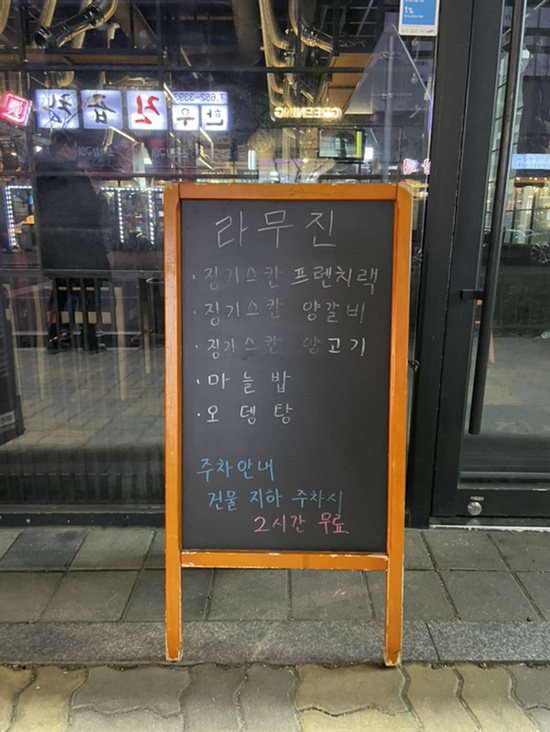 1%
T.652-339
한우진곱
GREENING
라무진
·징기스칸 프렌치랙
·징기스칸 양갈비
·징기스칸 양고기
·마늘밥
·오뎅탕
주차안내
건물 지하 주차시
2시간 무료